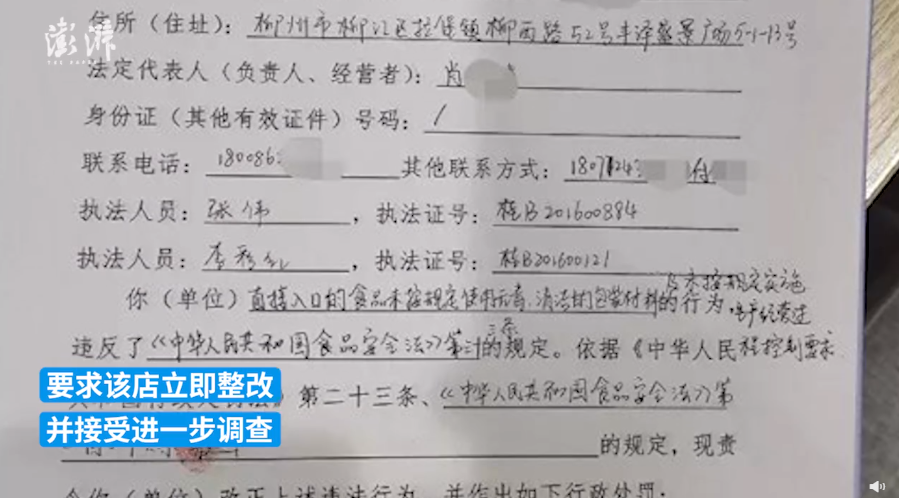 澎湃
THE PAPER
住所（住址）：柳州市柳江区拉堡镇柳西路52号丰泽盛景广场5-1-13号
法定代表人（负责人、经营者）：肖
身份证（其他有效证件）号码：/
联系电话：180086 其他联系方式：1807124
执法人员：张伟，执法证号：桂B201600884
执法人员：李秀，执法证号：桂B201600121
你（单位）直接入口的食品未按规定使用无毒、清洁的包装材料的行为，
及未按规定实施
生产经营过
程控制要求
违反了《中华人民共和国食品安全法》第的规定。依据《中华人民
三条
第二十三条、《中华人民共和国食品安全法》第
的规定，现责
令你（单位）改正上述违法行为，并作出如下行政处罚：
要求该店立即整改
并接受进一步调查